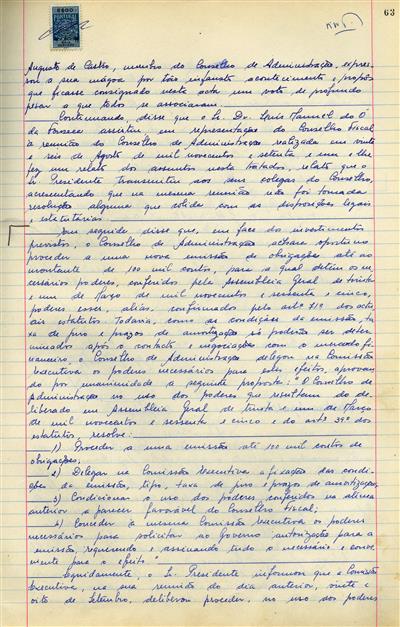 63
Augusto de Castro, membro do Conselho de Administração, expres-
sou a sua mágoa por tão infausto acontecimento e propôs
que ficasse consignado nesta acta um voto de profundo
pesar a que todos se associaram.
Continuando, disse que o Sr. Dr. Luis Manuel do Ó
da Fonseca assistiu em representação do Conselho Fiscal
à reunião do Conselho de Administração realizada em vinte
e seis de Agosto de mil novecentos e setenta e um e lhe
fez um relato dos assuntos nesta tratados, relato que o
Sr. Presidente transmitiu aos seus colegas do Conselho,
acrescentando que na mesma reunião não foi tomada
resolução alguma que colida com as disposições legais
e estatutárias.
Em seguida disse que, em face dos investimentos
previstos, o Conselho de Administração achava oportuno
proceder a uma nova emissão de obrigações até ao
montante de 100 mil contos, para a qual detém os ne-
cessários poderes, conferidos pela Assembleia Geral de trinta
e um de Março de mil novecentos e sessenta e cinco,
poderes esses, aliás, confirmados pelo artº 819 dos actu-
ais estatutos. Todavia, como as condições da emissão, ta-
xa de juro e prazos de amortização só poderão ser deter-
minados após o contacto e negociações com o mercado fi-
nanceiro, o Conselho de Administração delegou na Comissão
Executiva os poderes necessários para estes efeitos, aprovan-
do por unanimidade a seguinte proposta: "O Conselho de
Administração no uso dos poderes que resultam do de-
liberado em Assembleia Geral de trinta e um de Março
de mil novecentos e sessenta e cinco e do artº 39º dos
estatutos, resolve:
1) Proceder a uma emissão até 100 mil contos de
obrigações;
2) Delegar na Comissão Executiva a fixação das condi-
ções da emissão, tipo, taxa de juro e prazos de amortização;
3) Condicionar o uso dos poderes conferidos na alínea
anterior a parecer favorável do Conselho Fiscal;
4) Conceder à mesma Comissão Executiva os poderes
necessários para solicitar ao Governo autorização para a
emissão, requerendo e assinando tudo o necessário e conve-
niente para o efeito".
Seguidamente, o Sr. Presidente informou que a Comissão
Executiva, na sua reunião do dia anterior, vinte e
oito de Setembro, deliberou proceder, no uso dos poderes